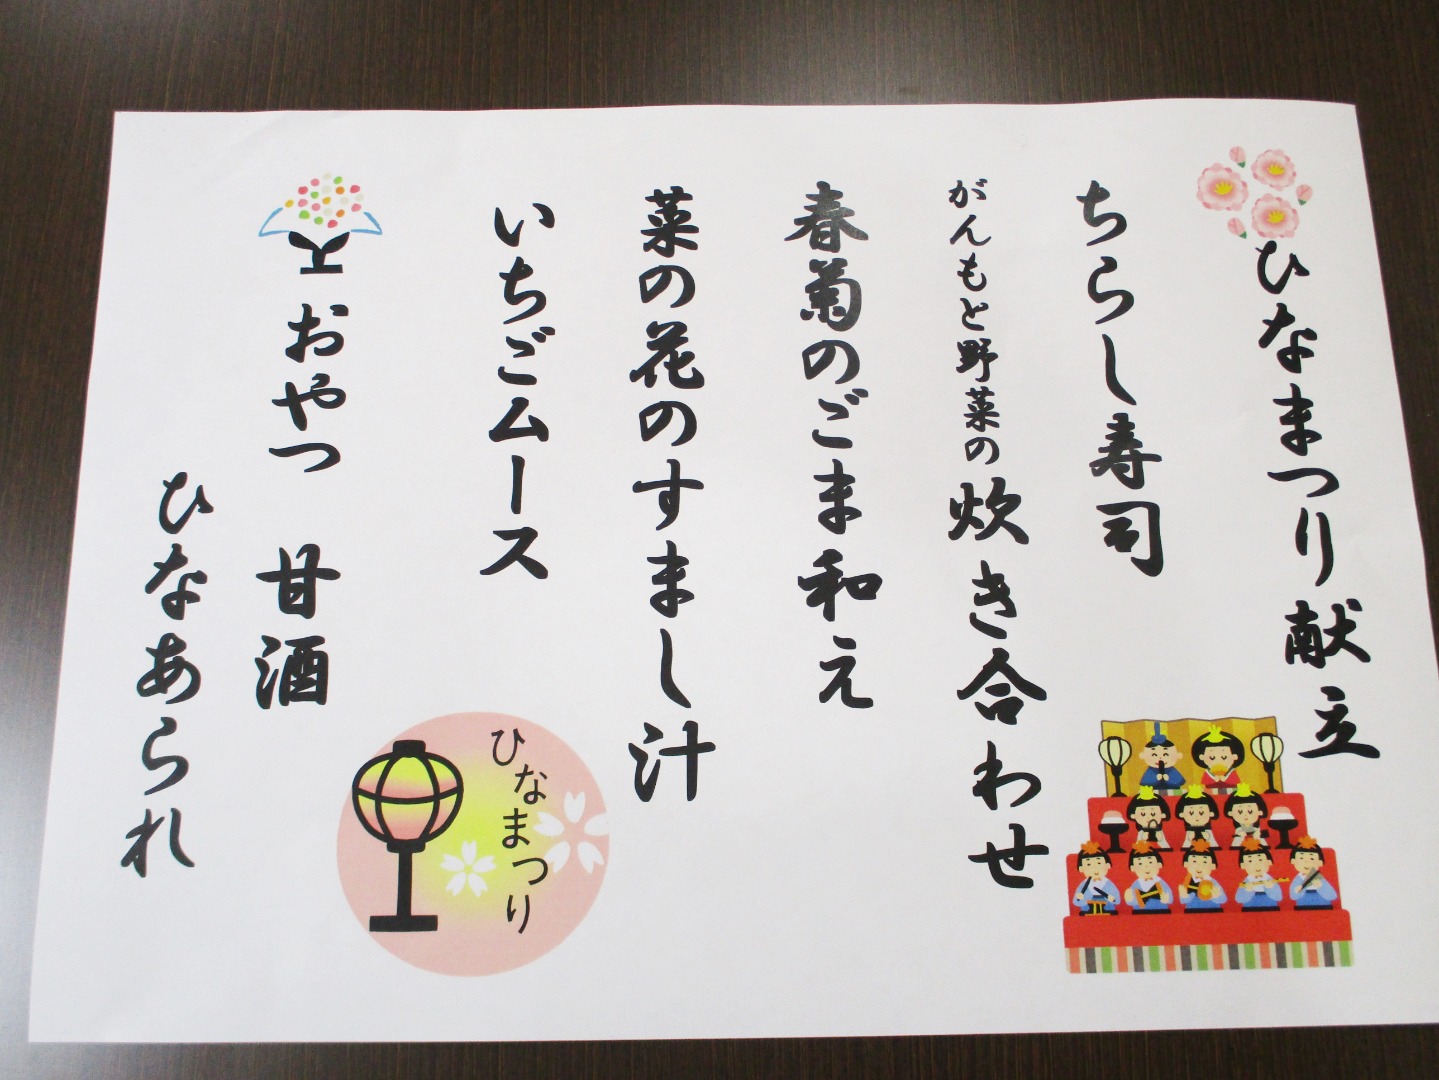 ひなまつり献立
ちらし寿司
がんもと野菜の炊き合わせ
春菊のごま和え
菜の花のすまし汁
いちごムース
おやつ 甘酒
ひなあられ
ひなまつり